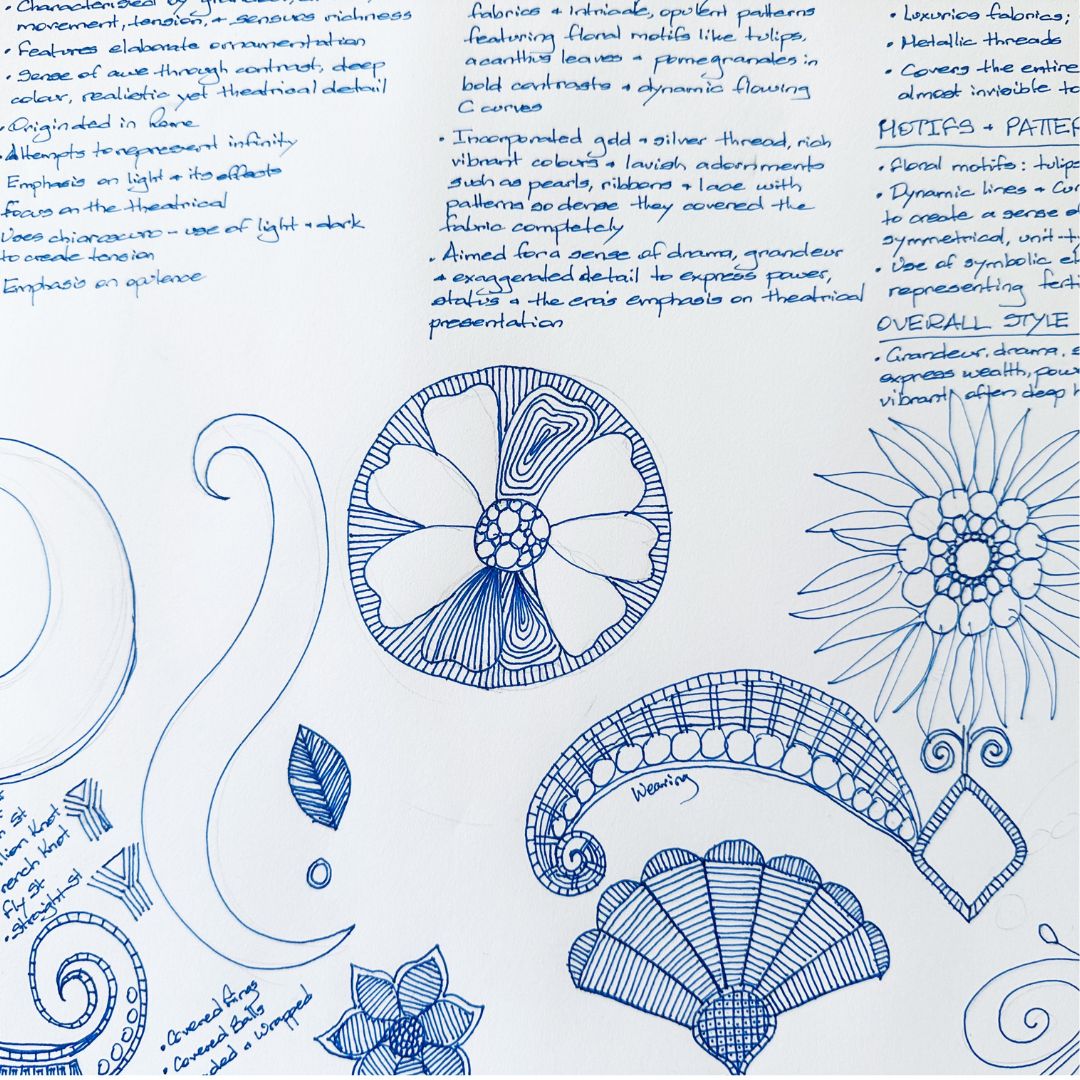 • Characterised by
movement, tension, + sensuous richness
• Features elaborate ornamentation
• Sense of awe through contrast, deep
colour, realistic yet theatrical detail
• Originded in Rome
• Attempts to represent infinity
Emphasis on light + its effects
focus on the theatrical
Uses chiaroscuro - use of light + dark
to create tension
Emphasis on opulence
fabrics + intricate, opulent patterns
featuring floral motifs like tulips,
acanthus leaves + pomegranates in
bold contrasts + dynamic flowing
C curves
• Incorporated gold + silver thread, rich
vibrant colours + lavish adornments
such as pearls, ribbons + lace with
patterns so dense they covered the
fabric completely
• Aimed for a sense of drama, grandeur
+ exaggerated detail to express power,
status + the era's emphasis on theatrical
presentation
• Luxurios fabrics;
• Metallic threads
• Covers the entire
almost invisible to
MOTIFS + PATTER
• floral motifs: tulips
• Dynamic lines + Cur
to create a sense of
symmetrical, unit-t
• Use of symbolic el
representing ferti
OVERALL STYLE
• Grandeur, drama,
express wealth, pow
vibrant, often deep h
Weaving
St
lion Knot
rench Knot
Fly St
• Straight St
• Covered Rings
• Covered Balls
ded + Wrapped